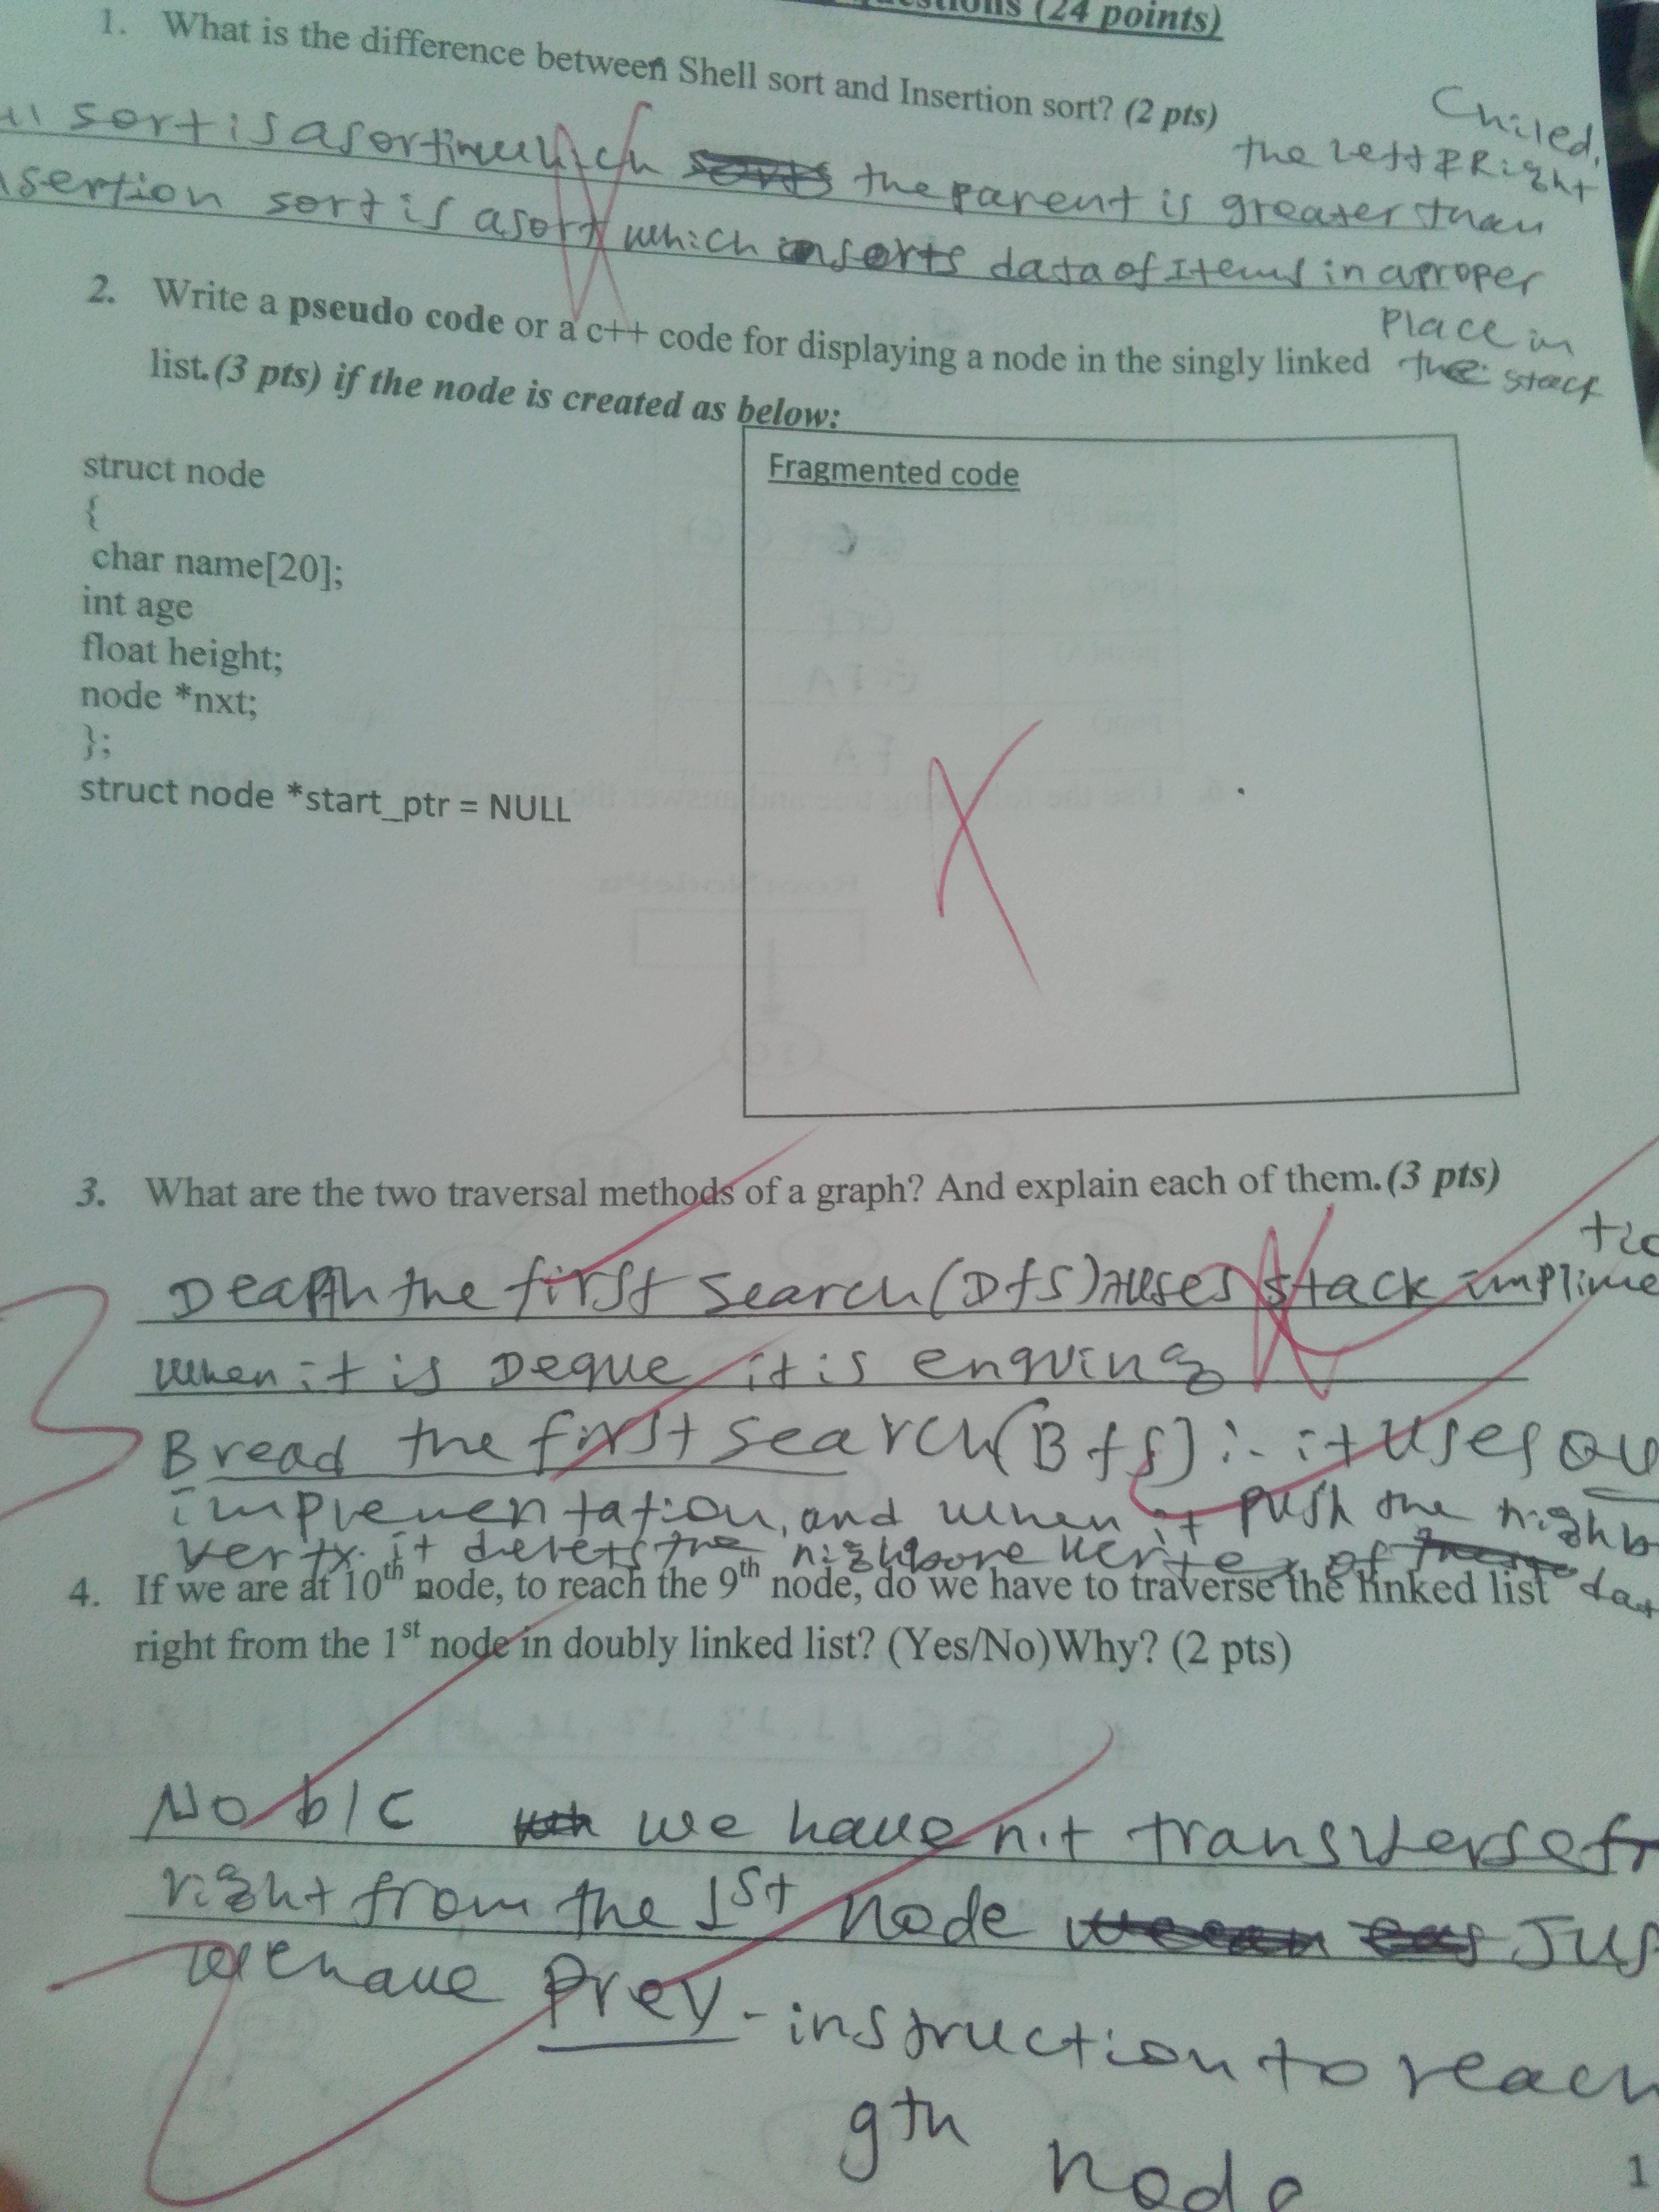 (24 points)
1. What is the difference between Shell sort and Insertion sort? (2 pts)
Chiled,
the Left & Right
sort is a sortin which the parent is greater than
sertion sort is a sort which inserts data of Items in a proper
Place in
the stack
2. Write a pseudo code or a c++ code for displaying a node in the singly linked
list.(3 pts) if the node is created as below:
Fragmented code
struct node
{
char name[20];
int age
float height;
node *nxt;
};
struct node *start_ptr = NULL
3. What are the two traversal methods of a graph? And explain each of them.(3 pts)
the first search (Dfs) uses stack implime
when it is Deque it is enqving
Bread the first search (Bfs) :- it uses qu
implementation, and when it push the nighb
vertx it delets the nighbore vertex of
dat
4. If we are at 10th node, to reach the 9th node, do we have to traverse the linked list
right from the 1st node in doubly linked list? (Yes/No)Why? (2 pts)
No b/c we have n.t transverse fr
right from the 1st node Jus
we have Prev - instruction to reach
9th node
1